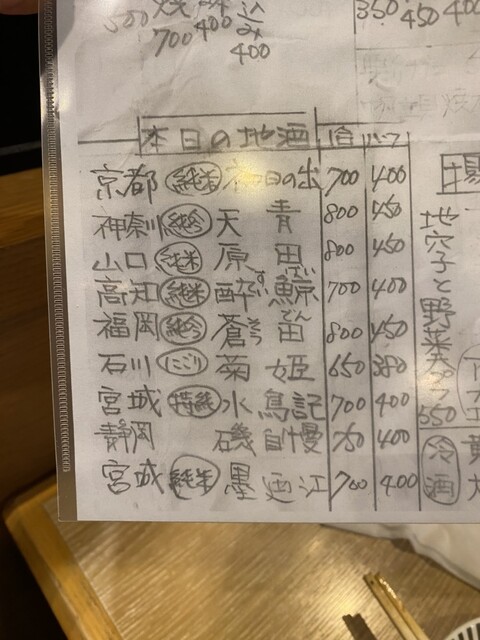 焼
500 700 400 込み 400
350 450 400
本日の地酒 合 ハーフ
京都 純吟 初日の出 700 400
神奈川 純吟 天青 800 450
山口 純米 原田 800 450
高知 純米 酔鯨 すいげい 700 400
福岡 純吟 蒼田 そうでん 800 450
石川 にごり 菊姫 650 380
宮城 特純 水鳥記 700 400
静岡 磯自慢 750 400
宮城 純米 墨廼江 700 400
揚
地穴子と野菜
550
冷酒